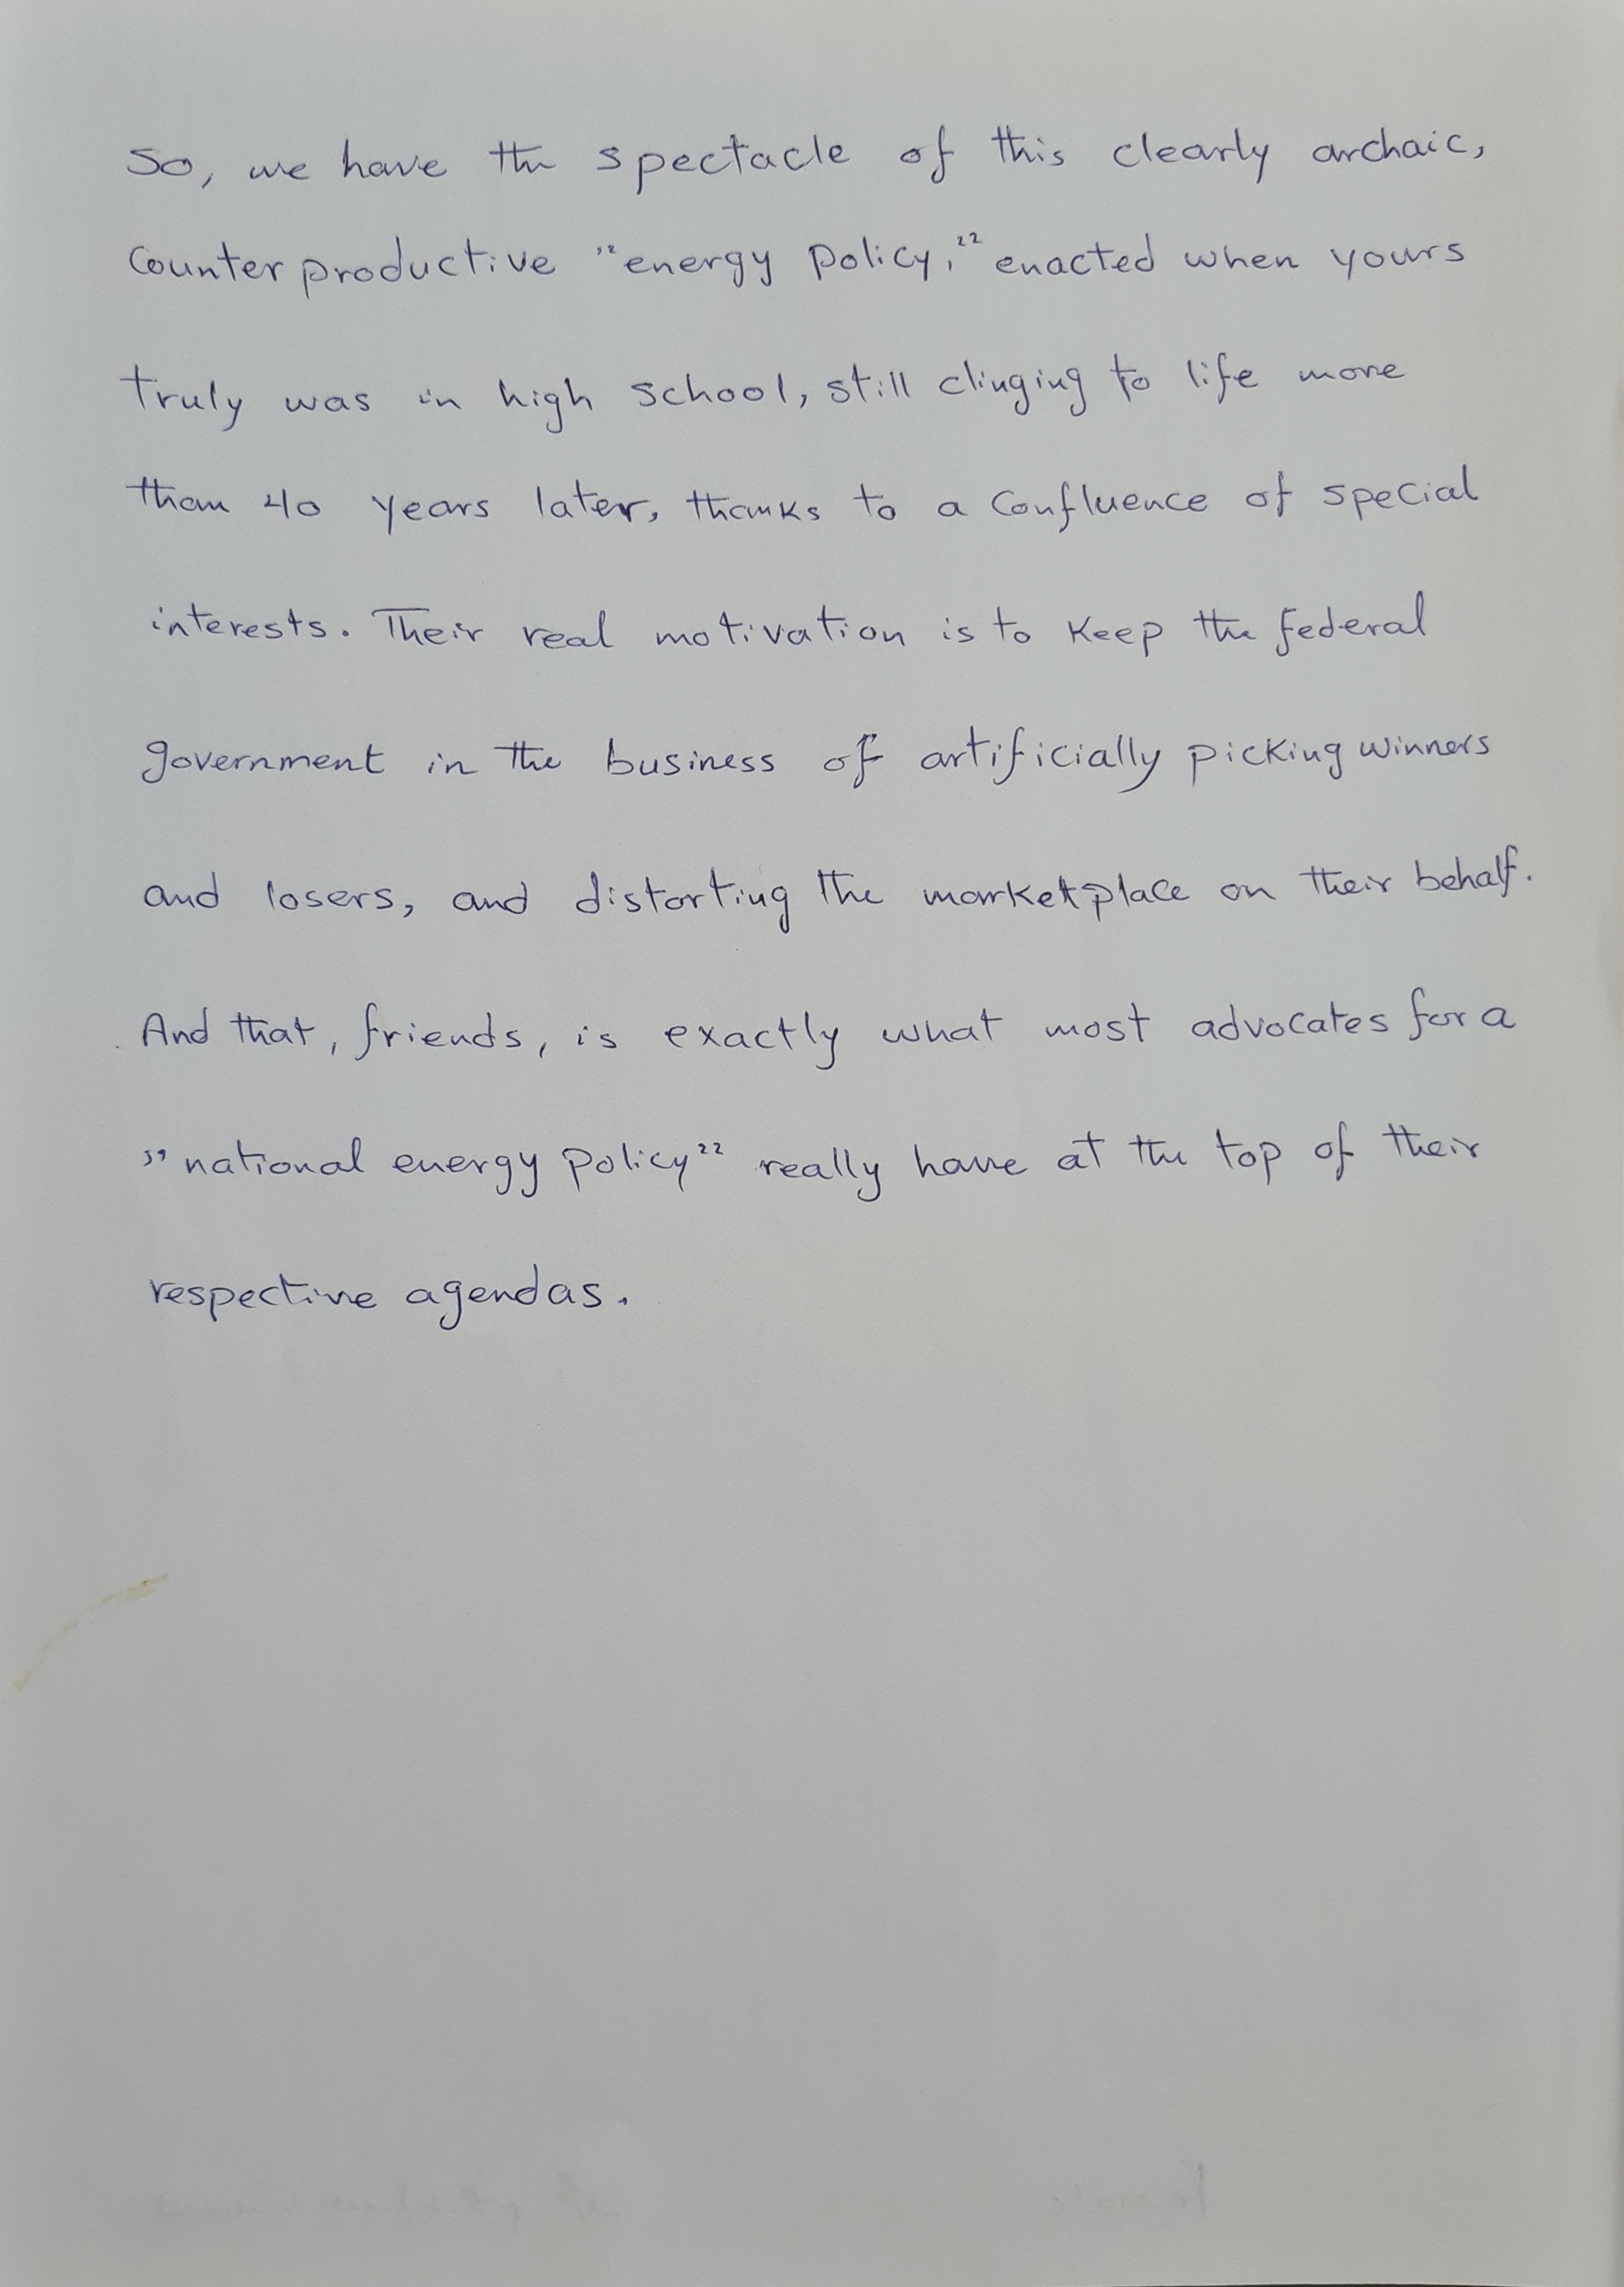 So, we have the spectacle of this clearly archaic,
Counterproductive "energy policy," enacted when yours
truly was in high school, still clinging to life more
than 40 years later, thanks to a confluence of special
interests. Their real motivation is to keep the federal
government in the business of artificially picking winners
and losers, and distorting the marketplace on their behalf.
And that, friends, is exactly what most advocates for a
"national energy policy" really have at the top of their
respective agendas.